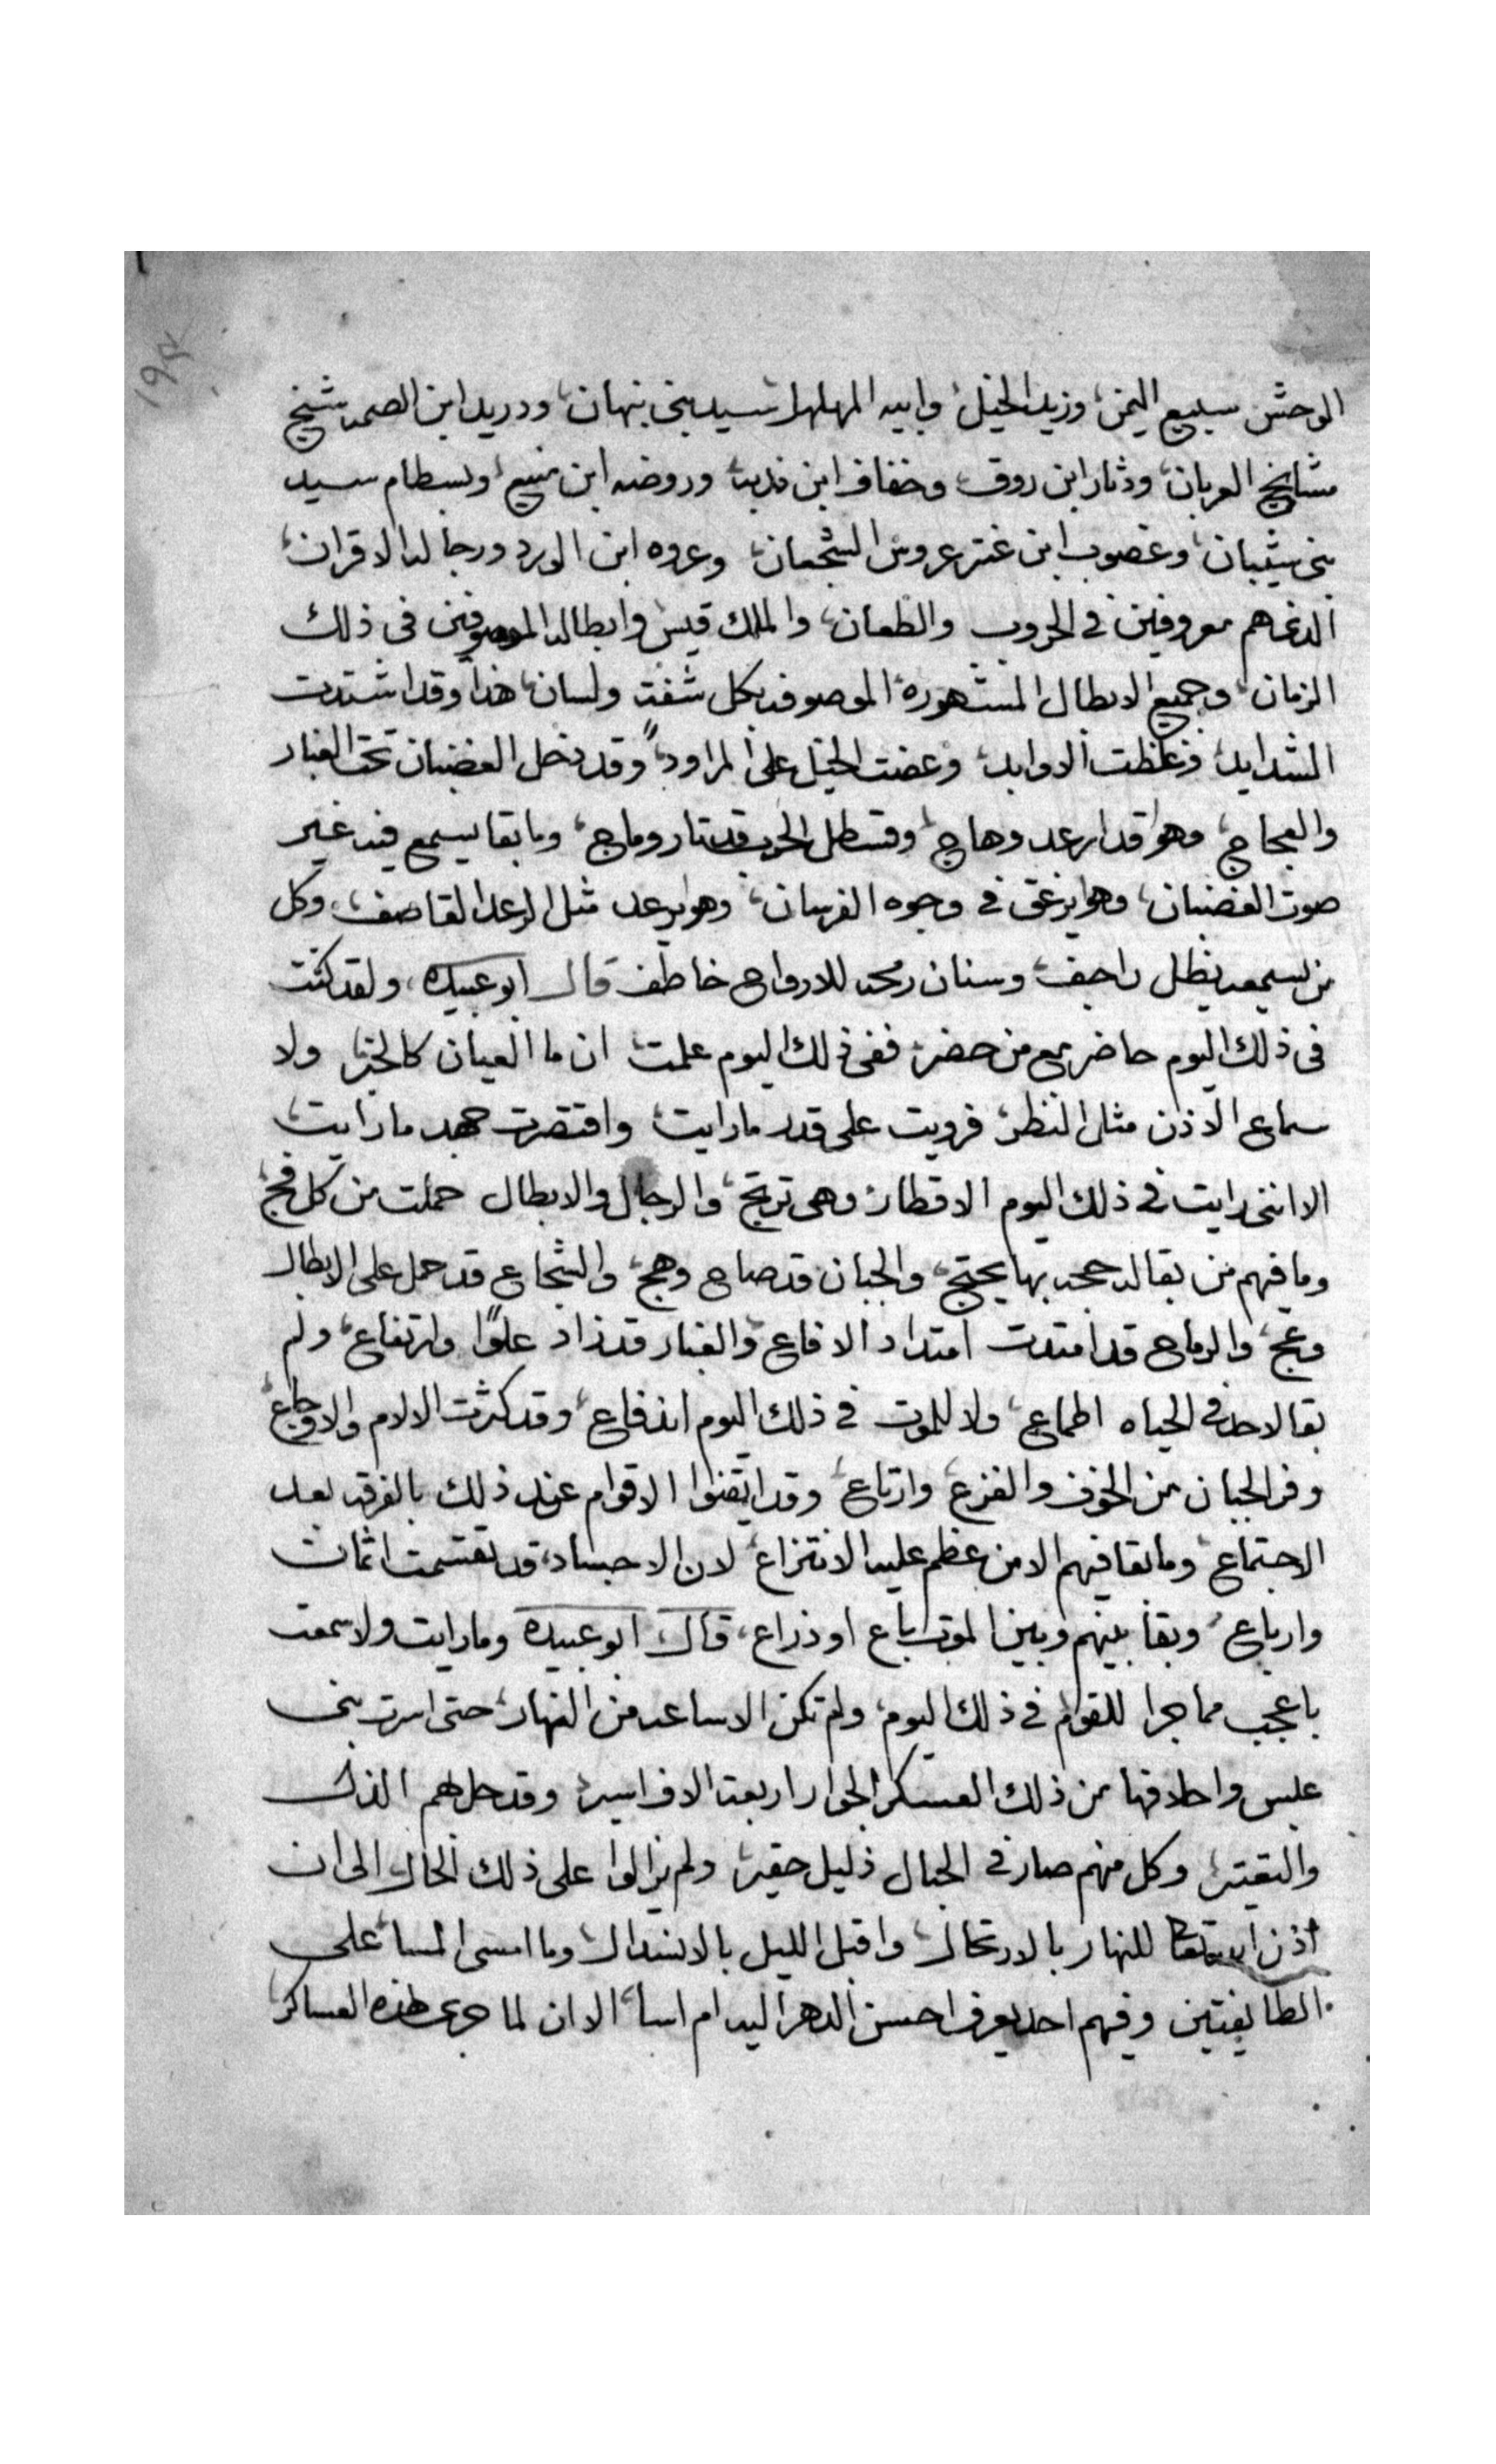 ١٩٤
الوحش سبيع اليمن، وزيد الخيل وابيه المهلهل سيد بنى نبهان، ودريد ابن الصمه شيخ
مشايخ العربان، ودثار ابن روق، وخفاف ابن ندبه، وروضه ابن منيع، وبسطام سيد
بنى شيبان، وغصوب ابن عنتر عروس الشجعان، وعروه ابن الورد ورجاله الاقران،
الذى هم معروفين فى الحروب والطعان، والملك قيس وابطاله الموصوفين فى ذلك
الزمان، وجميع الابطال المشهوره الموصوفه بكل شفة ولسان، هذا وقد اشتدت
الشدايد، وعظمت الاوابد، وعضت الخيل على المراود، وقد دخل الغضبان تحت الغبار
والعجاج، وهو قد ارعد وهاج، وقسطل الحرب قد تار وماج، وما بقا يسمع فيه غير
صوت الغضبان، وهو يزعق فى وجوه الفرسان، وهو يرعد مثل الرعد القاصف، وكل
من يسمعه يظل راجف، وسنان رمحه للارواح خاطف قال ابو عبيده، ولقد كنت
فى ذلك اليوم حاضر مع من حضر، ففى ذلك اليوم علمت ان ما العيان كالخبر، ولا
سماع الاذن مثل النظر، فرويت على قدر ما رايت، واقتصرت جهد ما رايت،
الا اننى رايت فى ذلك اليوم الاقطار وهى ترتج، والرجال والابطال حملت من كل فج،
وما فيهم من بقا له حجه بها يحتج، والجبان قد صاح وهج، والشجاع قد حمل على الابطال
وعج، والرماح قد امتدت امتداد الافاع، والغبار قد زاد علوًا وارتفاع، ولم
بقا لاحد فى الحياه اطماع، ولا للموت فى ذلك اليوم اندفاع، وقد كثرت الالام والاوجاع،
وفر الجبان من الخوف والفزع، وارتاع، وقد ايقنوا الاقوام عند ذلك بالفرقه بعد
الاجتماع، وما بقا فيهم الا من عظم عليه الانتزاع، لان الاجساد، قد تقسمت اثمان
وارباع، وبقا بينهم وبين الموت باع او ذراع، قال ابو عبيده وما رايت ولا سمعت
باعجب مما جرا للقوم فى ذلك اليوم، ولم تكن الا ساعه من النهار، حتى اسرت بنى
عبس واحلافها من ذلك العسكر الجرار اربعة الاف اسير، وقد حل بهم الذل
والتقتير، وكل منهم صار فى الحبال ذليل حقير، ولم يزالوا على ذلك الحال الى ان
اذن للنهار بالارتحال، واقبل الليل بالانسدال، وما امسى المسا على
الطايفتين وفيهم احد يعرف احسن الدهر اليه ام اسا، الا ان لما جرى هذه العساكر،